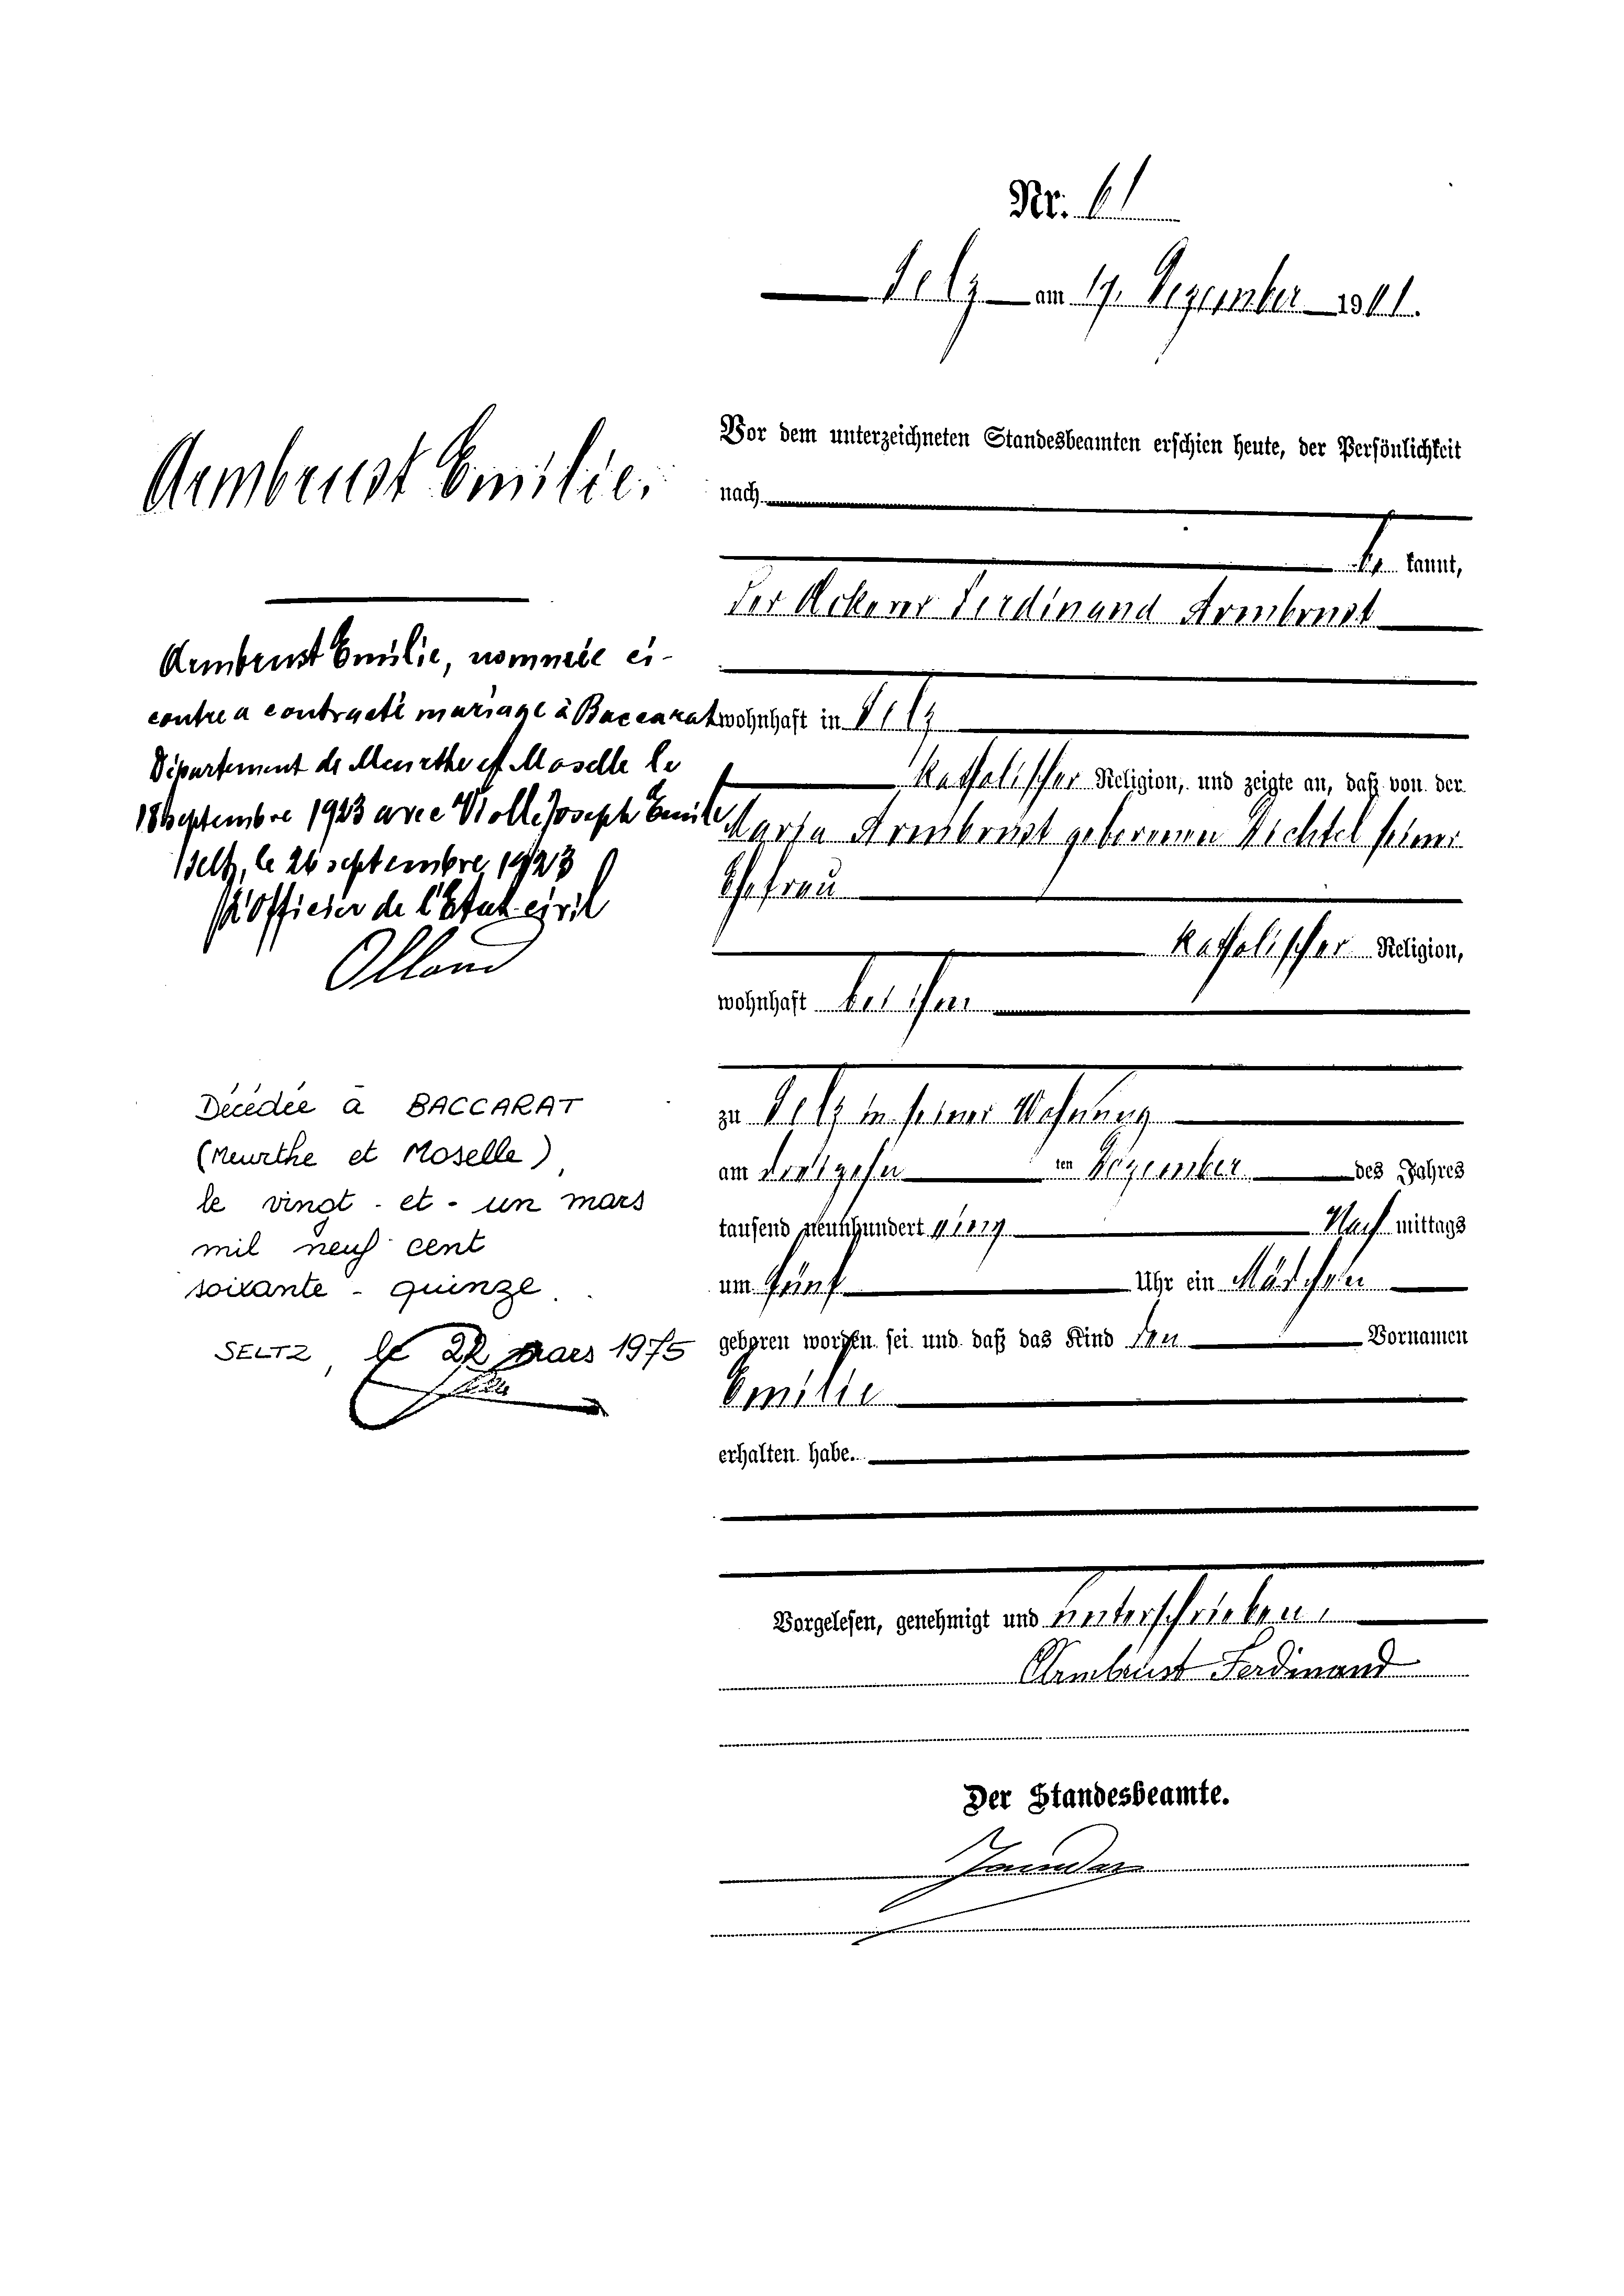 Nr. 61
Selz am 17. Dezember 1901.
Armbrust Emilie.
Armbrust Emilie, nommée ci-
contre a contracté mariage à Baccarat
Département de Meurthe et Moselle le
18 septembre 1923 avec Violle Joseph Emile
Seltz, le 26 septembre 1923
L'Officier de l'Etat civil
Décédée à BACCARAT
(Meurthe et Moselle),
le vingt-et-un mars
mil neuf cent
soixante-quinze.
SELTZ, le 22 mars 1975
Vor dem unterzeichneten Standesbeamten erschien heute, der Persönlichkeit
nach
be kannt,
der Ackerer Ferdinand Armbrust
wohnhaft in Selz
katholischer Religion, und zeigte an, daß von der
Maria Armbrust geborenen Richtel seiner
Ehefrau
katholischer Religion,
wohnhaft bei ihm
zu Selz in seiner Wohnung
am dreizehn ten Dezember des Jahres
tausend neunhundert eins Nach mittags
um fünf Uhr ein Mädchen
geboren worden sei und daß das Kind den Vornamen
Emilie
erhalten habe.
Vorgelesen, genehmigt und unterschrieben.
Armbrust Ferdinand
Der Standesbeamte.